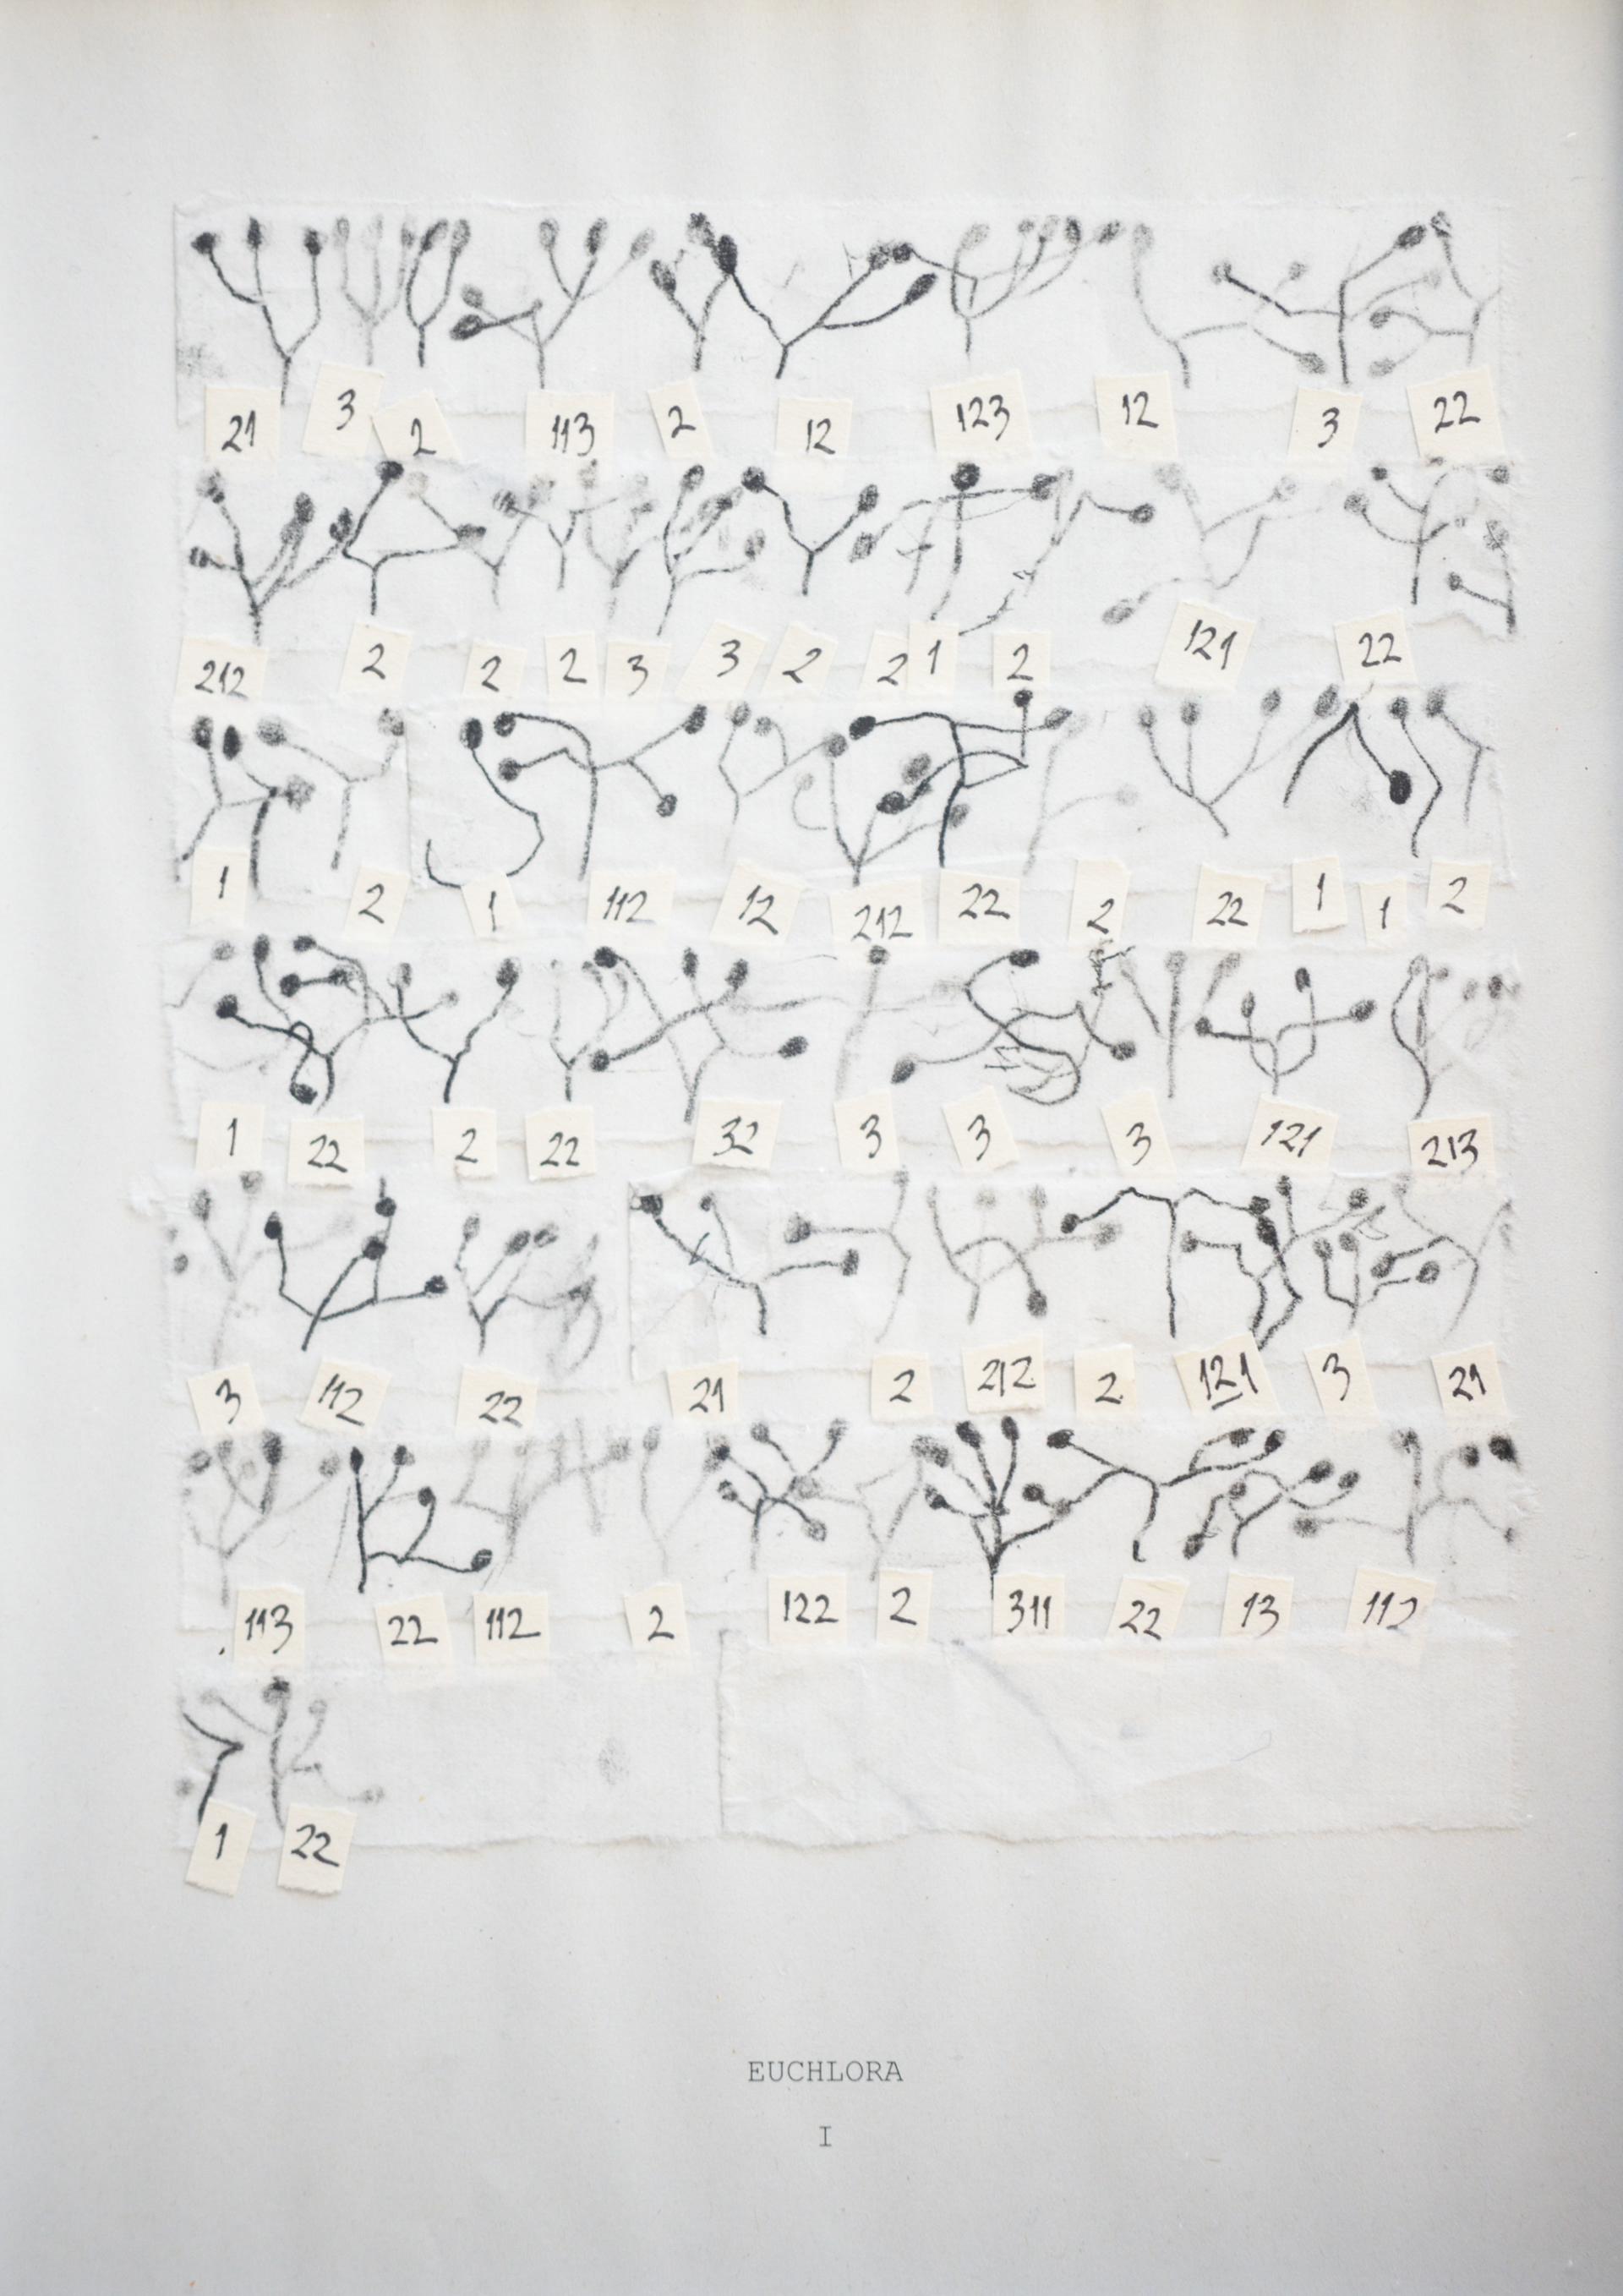 21 3 2 113 2 12 123 12 3 22
212 2 2 2 3 3 2 2 1 2 121 22
1 2 1 112 12 212 22 2 22 1 1 2
1 22 2 22 32 3 3 3 121 213
3 112 22 21 2 212 2. 121 3 21
113 22 112 2 122 2 311 22 13 112
1 22
EUCHLORA
I